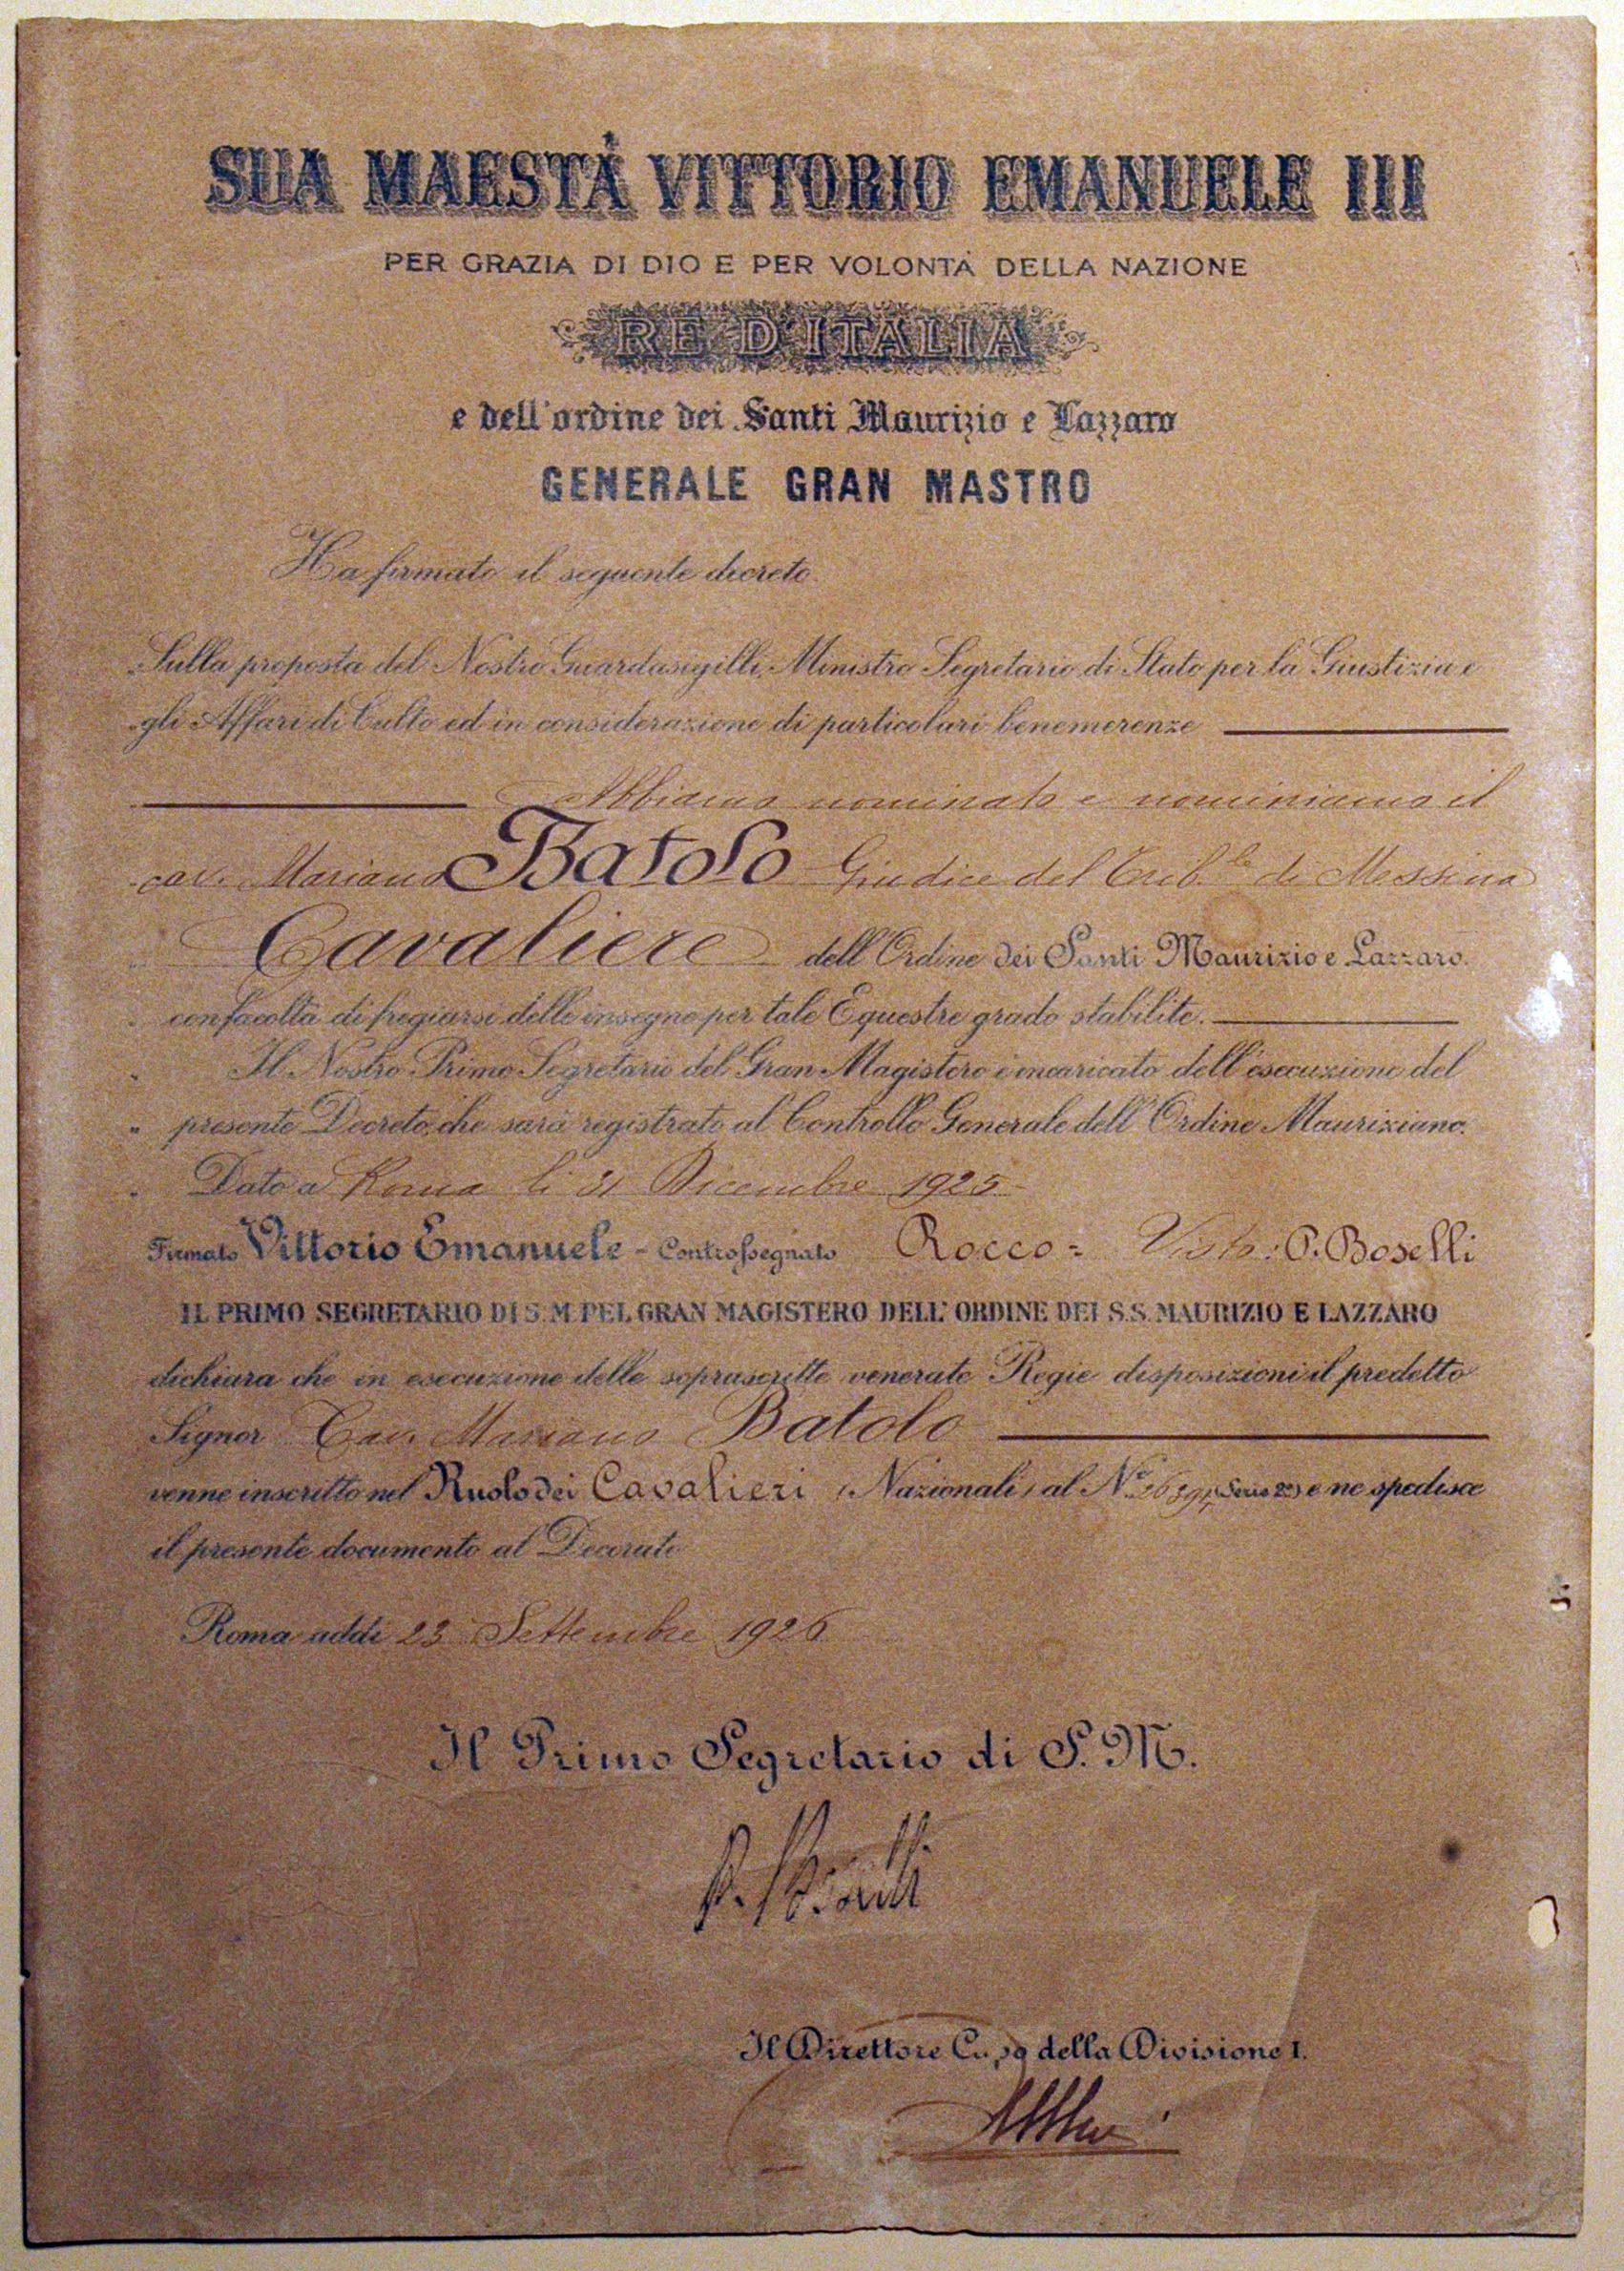 SUA MAESTÀ VITTORIO EMANUELE III
PER GRAZIA DI DIO E PER VOLONTÀ DELLA NAZIONE
RE D'ITALIA
e dell'ordine dei Santi Maurizio e Lazzaro
GENERALE GRAN MASTRO
Ha firmato il seguente decreto
Sulla proposta del Nostro Guardasigilli, Ministro Segretario di Stato per la Giustizia e
gli Affari di Culto ed in considerazione di particolari benemerenze
Abbiamo nominato e nominiamo il
cav. Mariano Batolo Giudice del Trib.le di Messina
Cavaliere dell'Ordine dei Santi Maurizio e Lazzaro.
con facoltà di fregiarsi delle insegne per tale Equestre grado stabilite.
Il Nostro Primo Segretario del Gran Magistero è incaricato dell'esecuzione del
" presente Decreto, che sarà registrato al Controllo Generale dell'Ordine Mauriziano.
Dato a Roma li 31 Dicembre 1925
Firmato Vittorio Emanuele - Controssegnato Rocco = Visto: P. Boselli
IL PRIMO SEGRETARIO DI S. M. PEL GRAN MAGISTERO DELL' ORDINE DEI S.S. MAURIZIO E LAZZARO
dichiara che in esecuzione delle soprascritte venerate Regie disposizioni il predetto
Signor Cav. Mariano Batolo
venne inscritto nel Ruolo dei Cavalieri (Nazionali) al N.o (Serie 2a) e ne spedisce
il presente documento al Decorato
Roma addì 23 Settembre 1926
Il Primo Segretario di S. M.
P. Boselli
Il Direttore Capo della Divisione I.